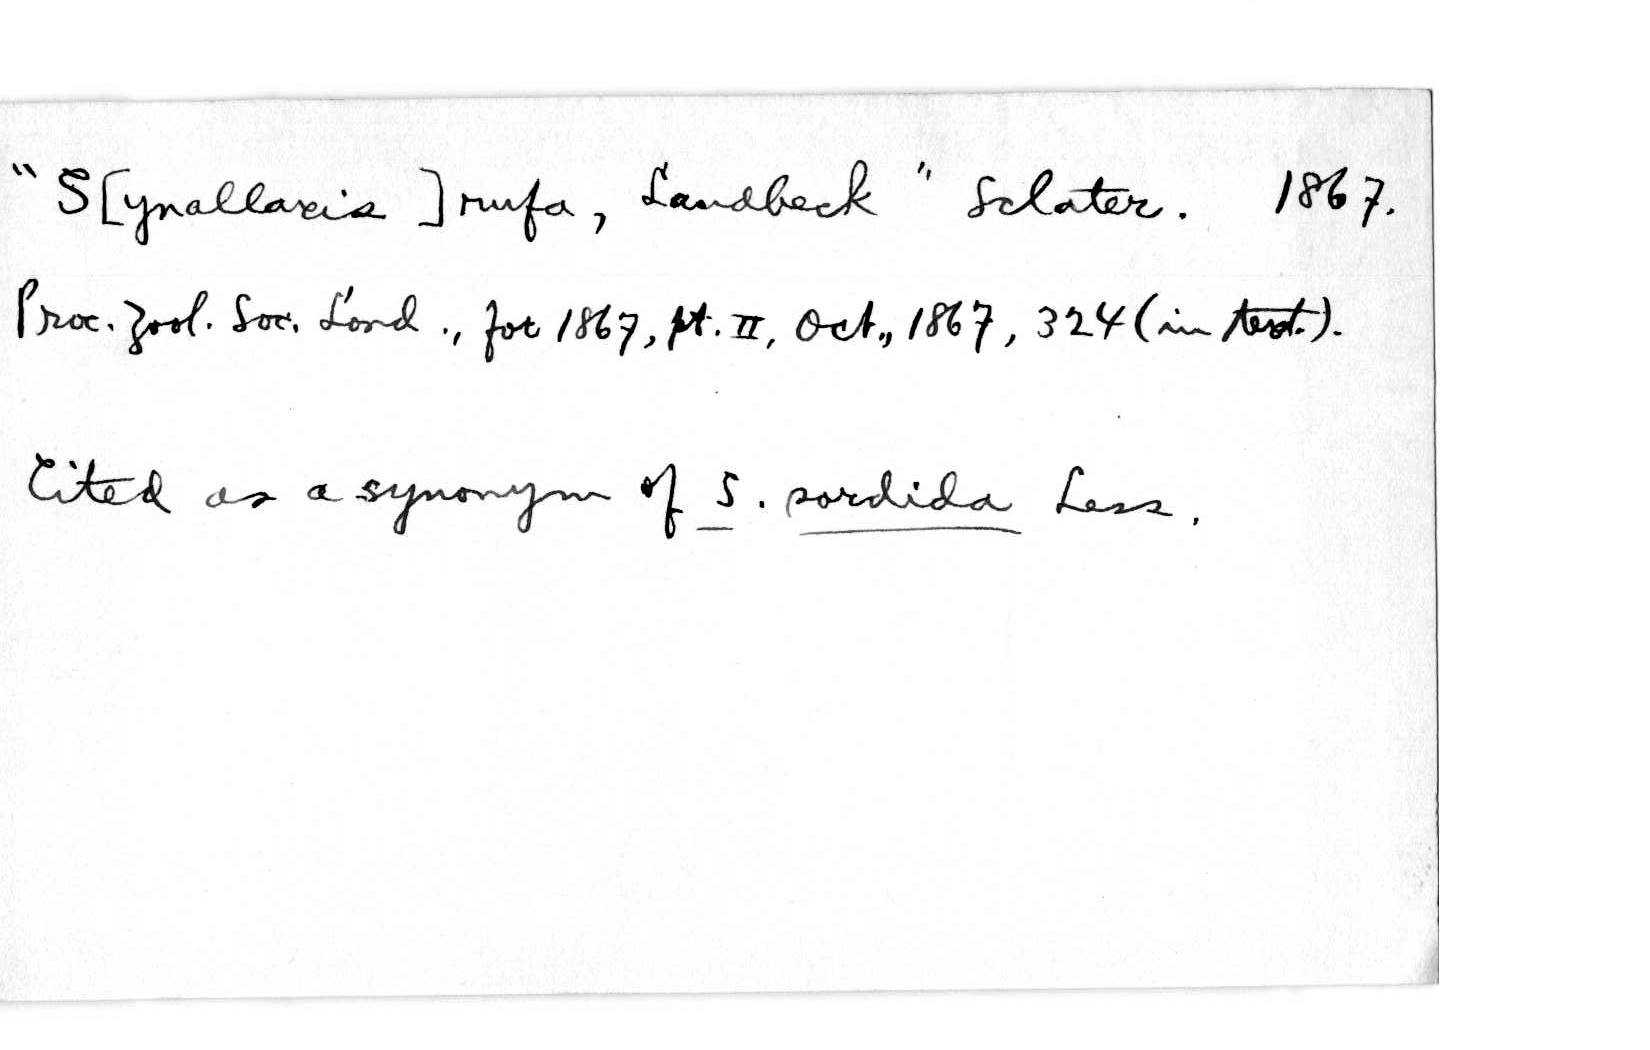 "S[ynallaxis ] rufa, Landbeck" Sclater. 1867.
Proc. Zool. Soc. Lond., for 1867, pt. II, Oct., 1867, 324 (in text.).
Cited as a synonym of S. sordida Less.